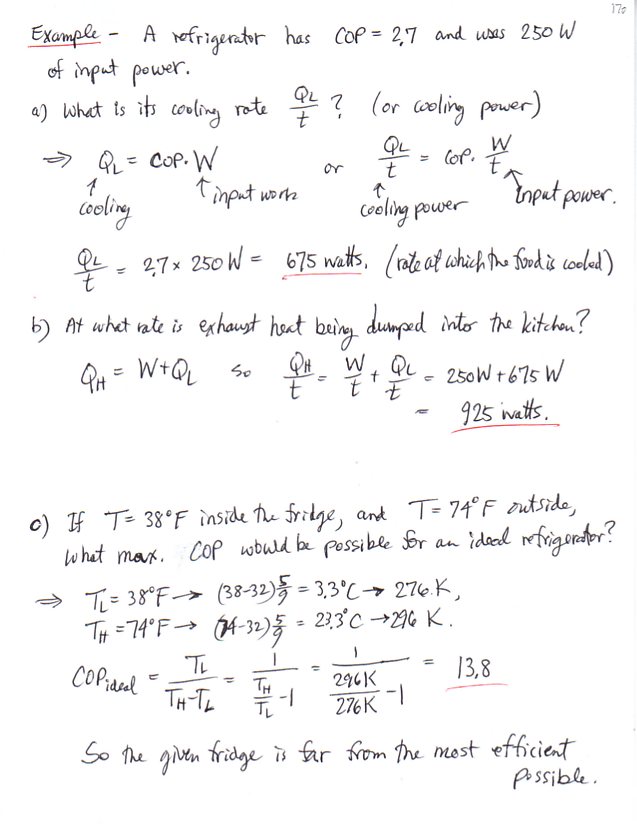 170
Example - A refrigerator has COP = 2.7 and uses 250 W
of input power.
a) What is its cooling rate QL/t ? (or cooling power)
⇒ QL = COP·W or QL/t = COP· W/t
↑ cooling ↑ input work ↑ cooling power input power.
QL/t = 2.7 × 250 W = 675 watts. (rate at which the food is cooled)
b) At what rate is exhaust heat being dumped into the kitchen?
QH = W+QL so QH/t = W/t + QL/t = 250W + 675 W
= 925 watts.
c) If T= 38°F inside the fridge, and T= 74°F outside,
what max. COP would be possible for an ideal refrigerator?
⇒ TL = 38°F → (38-32)5/9 = 3.3°C → 276 K,
TH = 74°F → (74-32)5/9 = 23.3°C → 296 K.
COPideal = TL/(TH-TL) = 1/(TH/TL -1) = 1/(296K/276K -1) = 13.8
So the given fridge is far from the most efficient
possible.